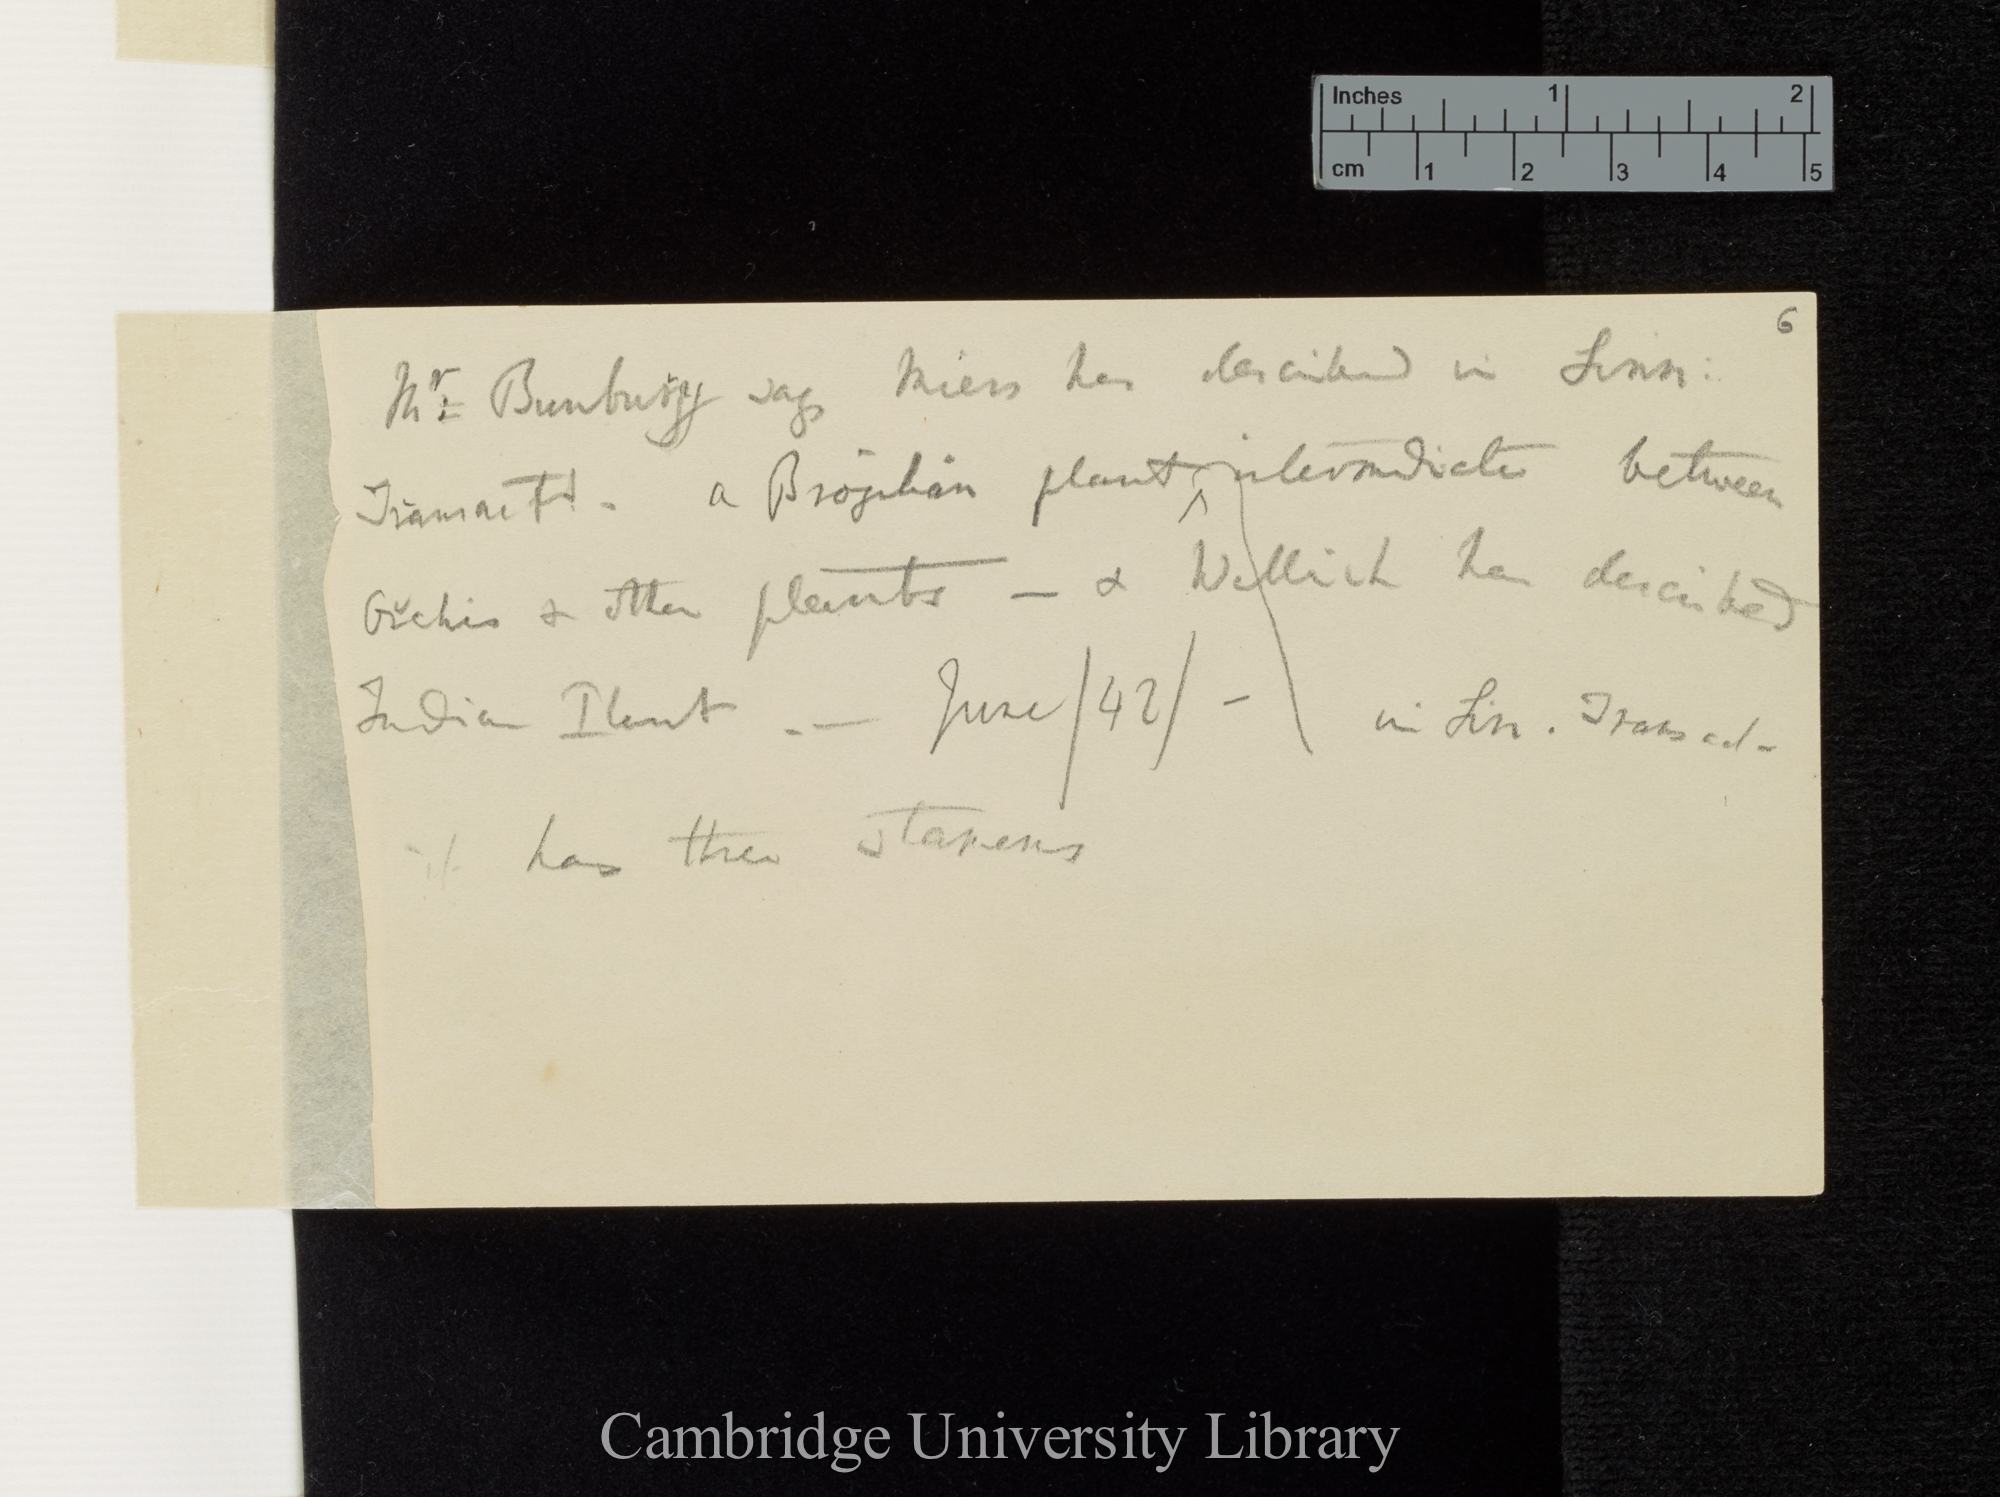 Inches 1 2
cm 1 2 3 4 5
6
Mr Bunbury says Miers has described in Linn:
Transactd. a Brazilian plant intermediate between
Orchis & other plants — & Wallich has described
Indian Plant — June/42/ — in Lin. Transact-
it has three stamens
Cambridge University Library